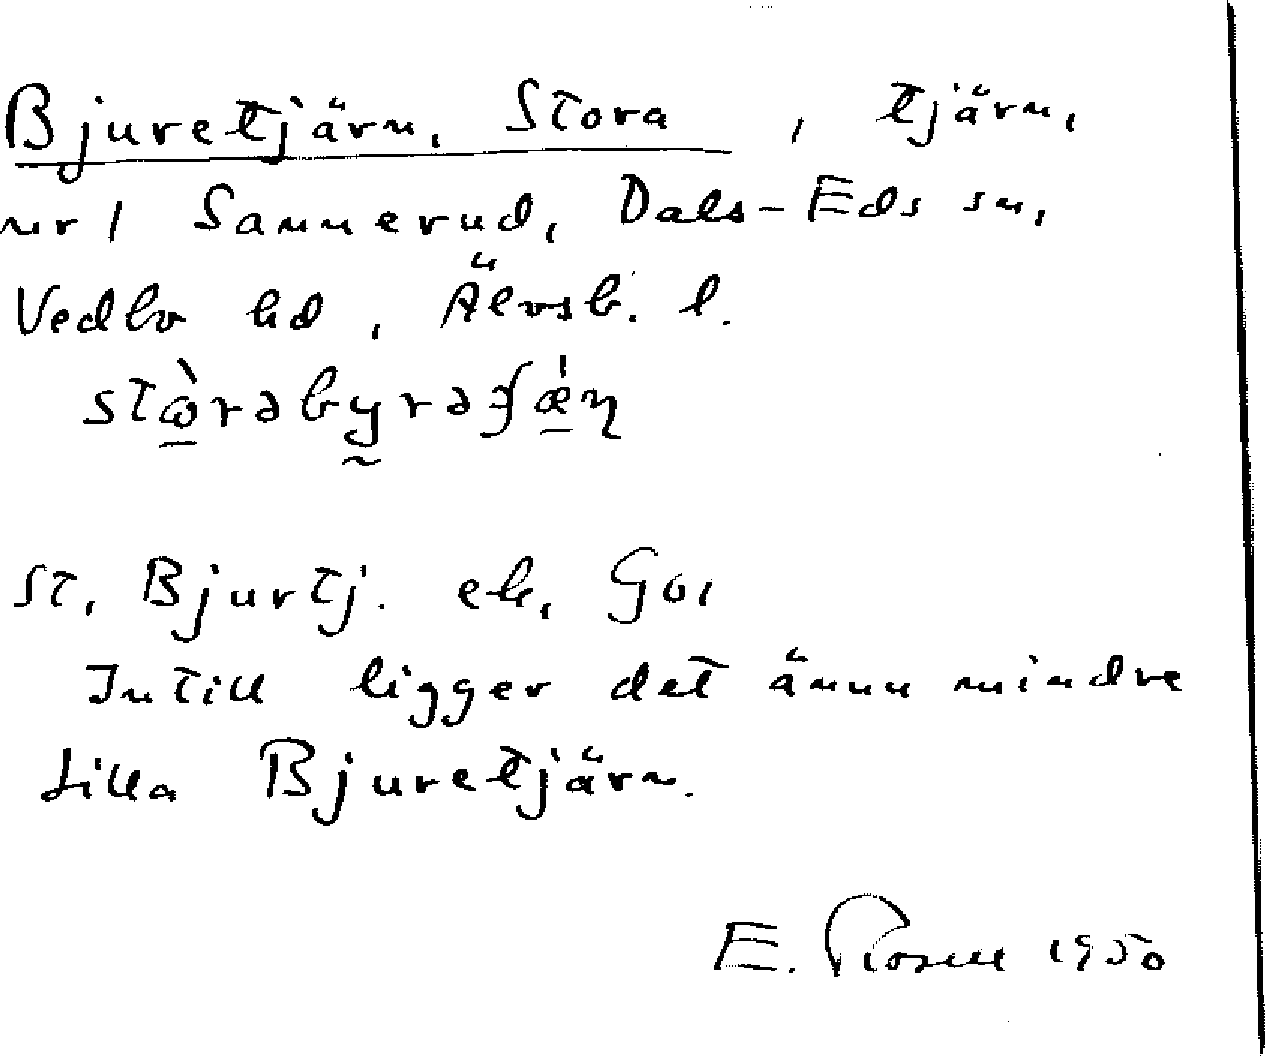 Bjuretjärn, Stora, tjärn,
nr 1 Sannerud, Dals-Eds sn,
Vedbo hd, Älvsb. l.
St. Bjurtj. ek,
Intill ligger det ännu mindre
Lilla Bjuretjärn.
E. Rosell 1950